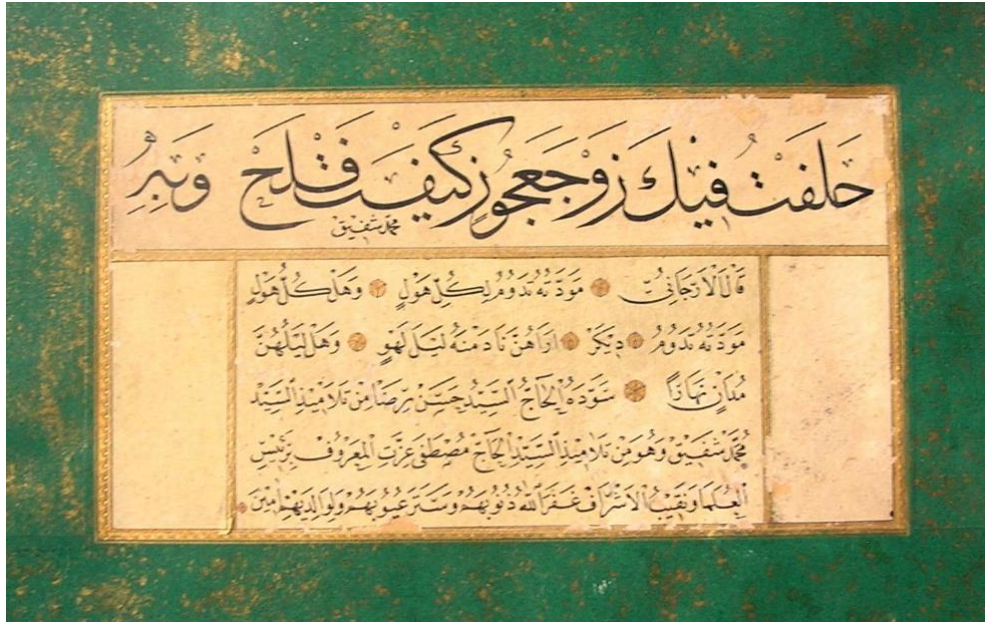 حلفت فيك زوجعجوز كيف فلح وبر
محمد شفيق
قال الارجاني مودته تدوم لكل هول وهل كل هول
مودته تدوم ديكر اراهن نادمنه ليل لهو وهل ليلهن
مدان نهارا سوده الحاج السيد حسن رضا من تلاميذ السيد
محمد شفيق وهو من تلاميذ السيد الحاج مصطفى عزت المعروف برئيس
العلما ونقيب الاشراف غفر الله ذنوبهم وستر عيوبهم ولوالديهم امين